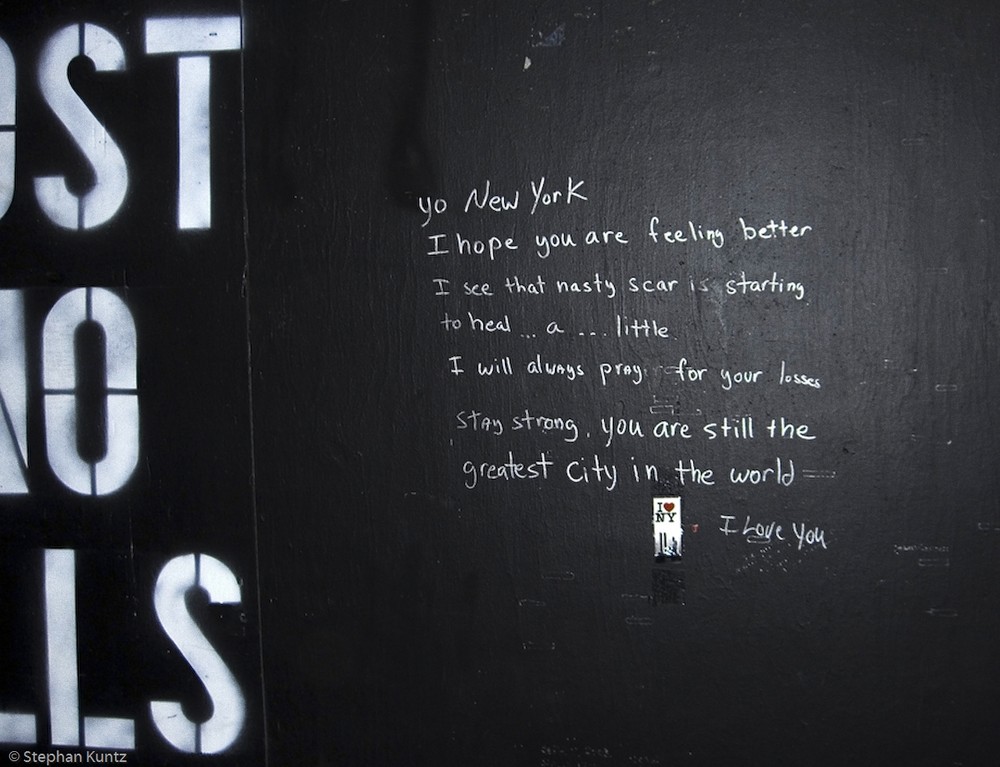 OST
NO
LLS
yo New York
I hope you are feeling better
I see that nasty scar is starting
to heal ... a ... little
I will always pray for your losses
stay strong, you are still the
greatest city in the world
I ♥
NY
I Love You
© Stephan Kuntz